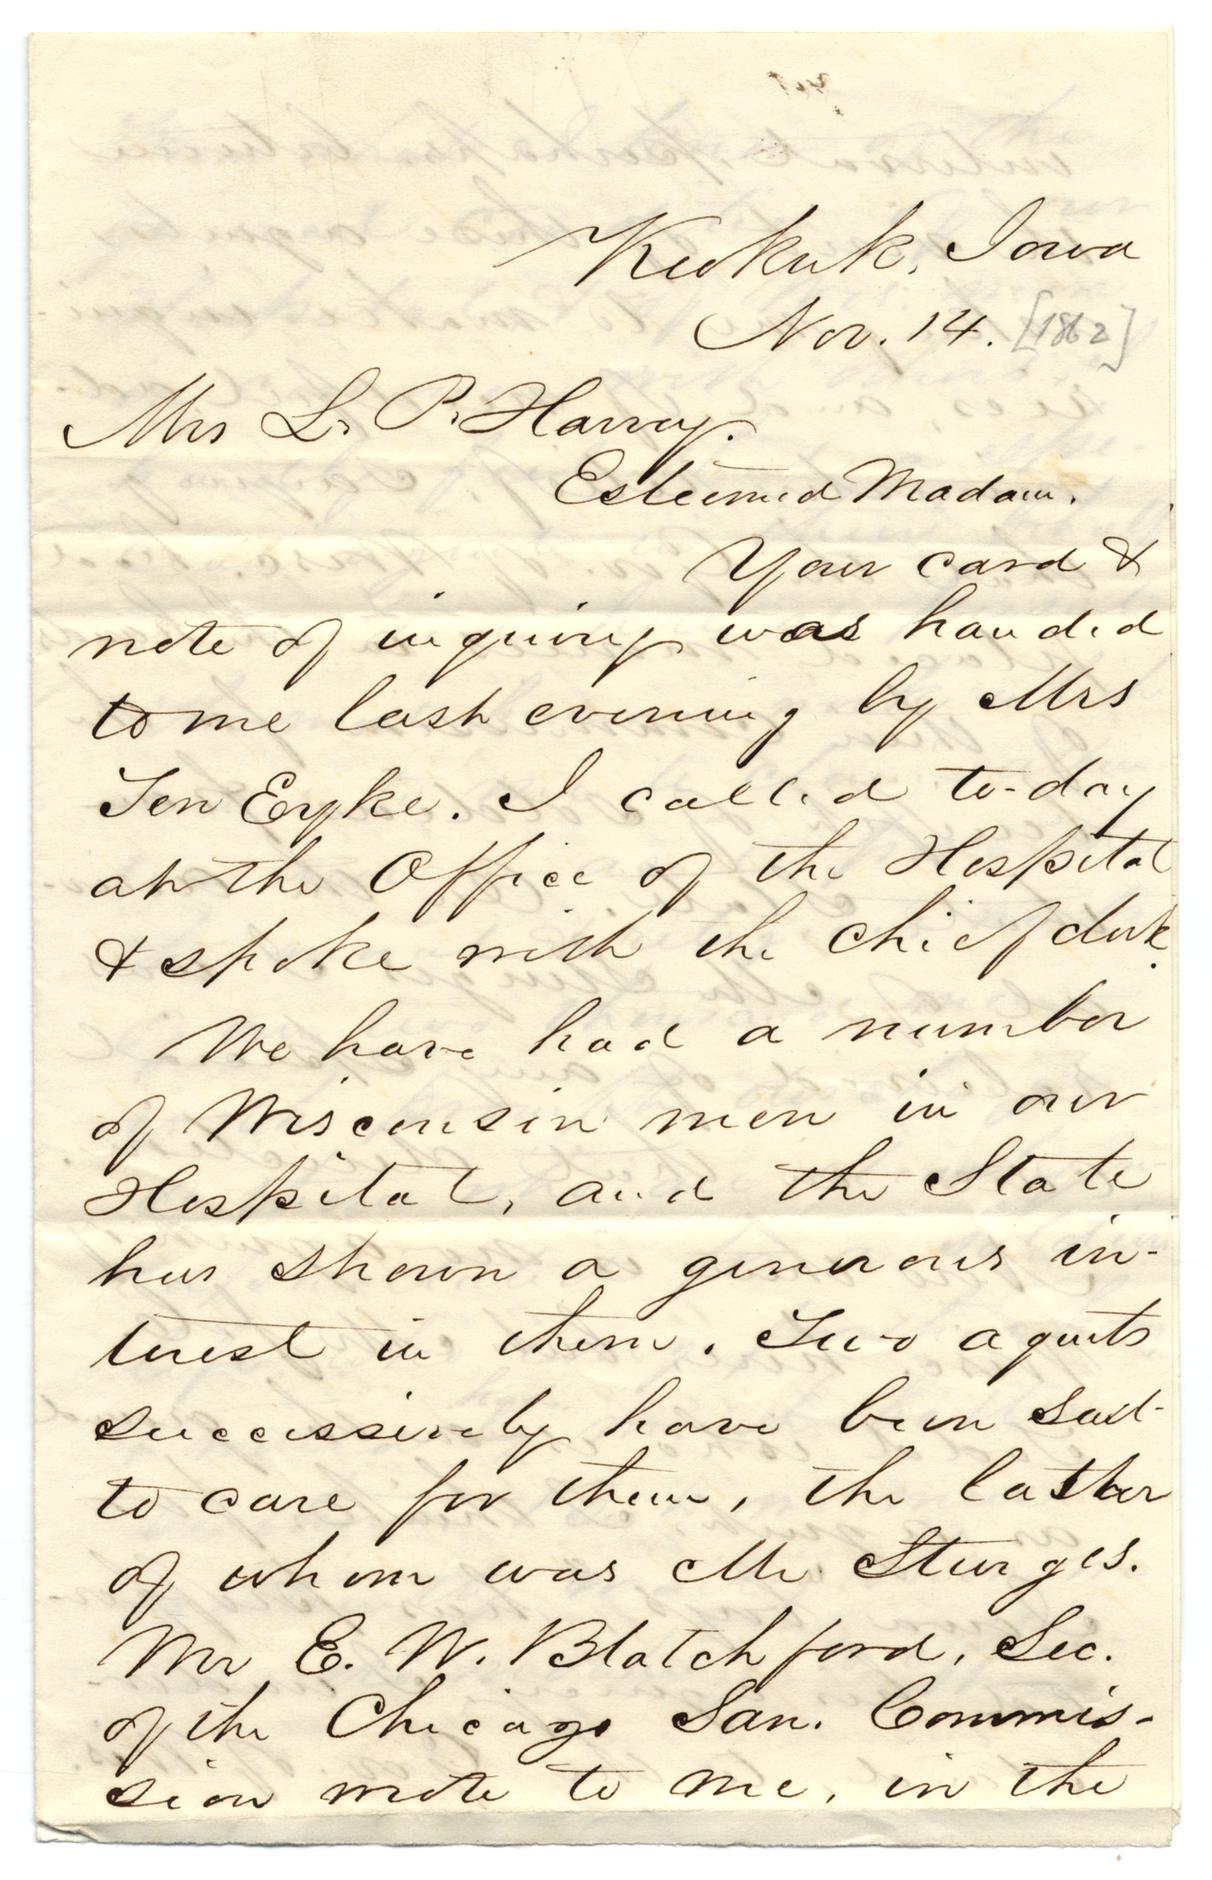 Keokuk, Iowa
Nov. 14. [1862]
Mrs L. P. Harvey.
Esteemed Madam.
Your card &
note of inquiry was handed
to me last evening by Mrs
Ten Eyke. I called to-day
at the Office of the Hospital
& spoke with the chief clerk.
We have had a number
of Wisconsin men in our
Hospital, and the State
has shown a generous in-
terest in them. Two agents
successively have been sent
to care for them, the latter
of whom was Mr Sturges.
Mr E. W. Blatchford, Sec.
of the Chicago San. Commis-
sion wrote to me, in the